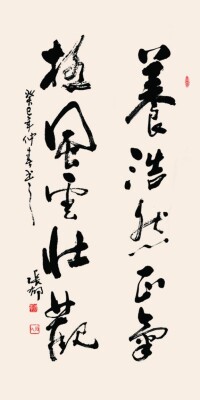 養浩然正氣
極風雲壯觀
癸巳年仲春書
張郁